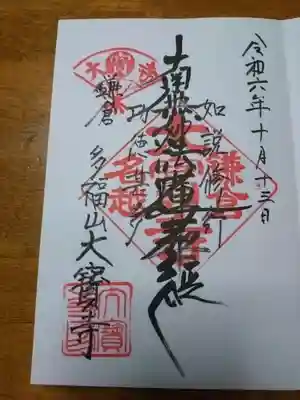 令和六年十月十三日
如説修行
南無妙法蓮華経
功徳甚多
鎌倉
多福山大寳寺
鎌倉
名越